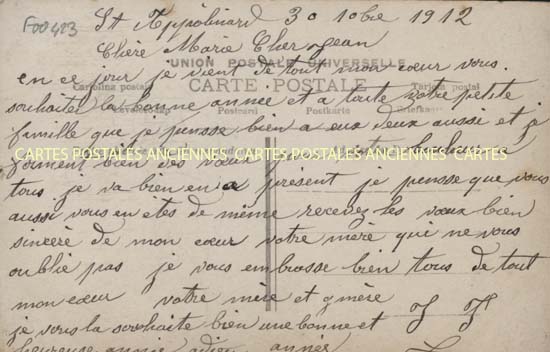 F00423
St Appolinard 30 10bre 1912
Chère Marie Cherogean
UNION POSTALE UNIVERSELLE
en ce jour je vient de tout mon cœur vous
CARTE POSTALE
souhaiter la bonne année et a toute votre petite
famille que je pensse bien a eux deux aussi et je
forment bien des vœux pour votre
CARTES POSTALES ANCIENNES CARTES POSTALES ANCIENNES CARTES
tous je va bien en a présent je pensse que vous
aussi vous en etes de même recevez les vœux bien
sincère de mon cœur votre mère qui ne vous
oublie pas je vous embrasse bien tous de tout
mon cœur votre mère et g mère
je vous la souhaite bien une bonne et
heureuse année adieu année